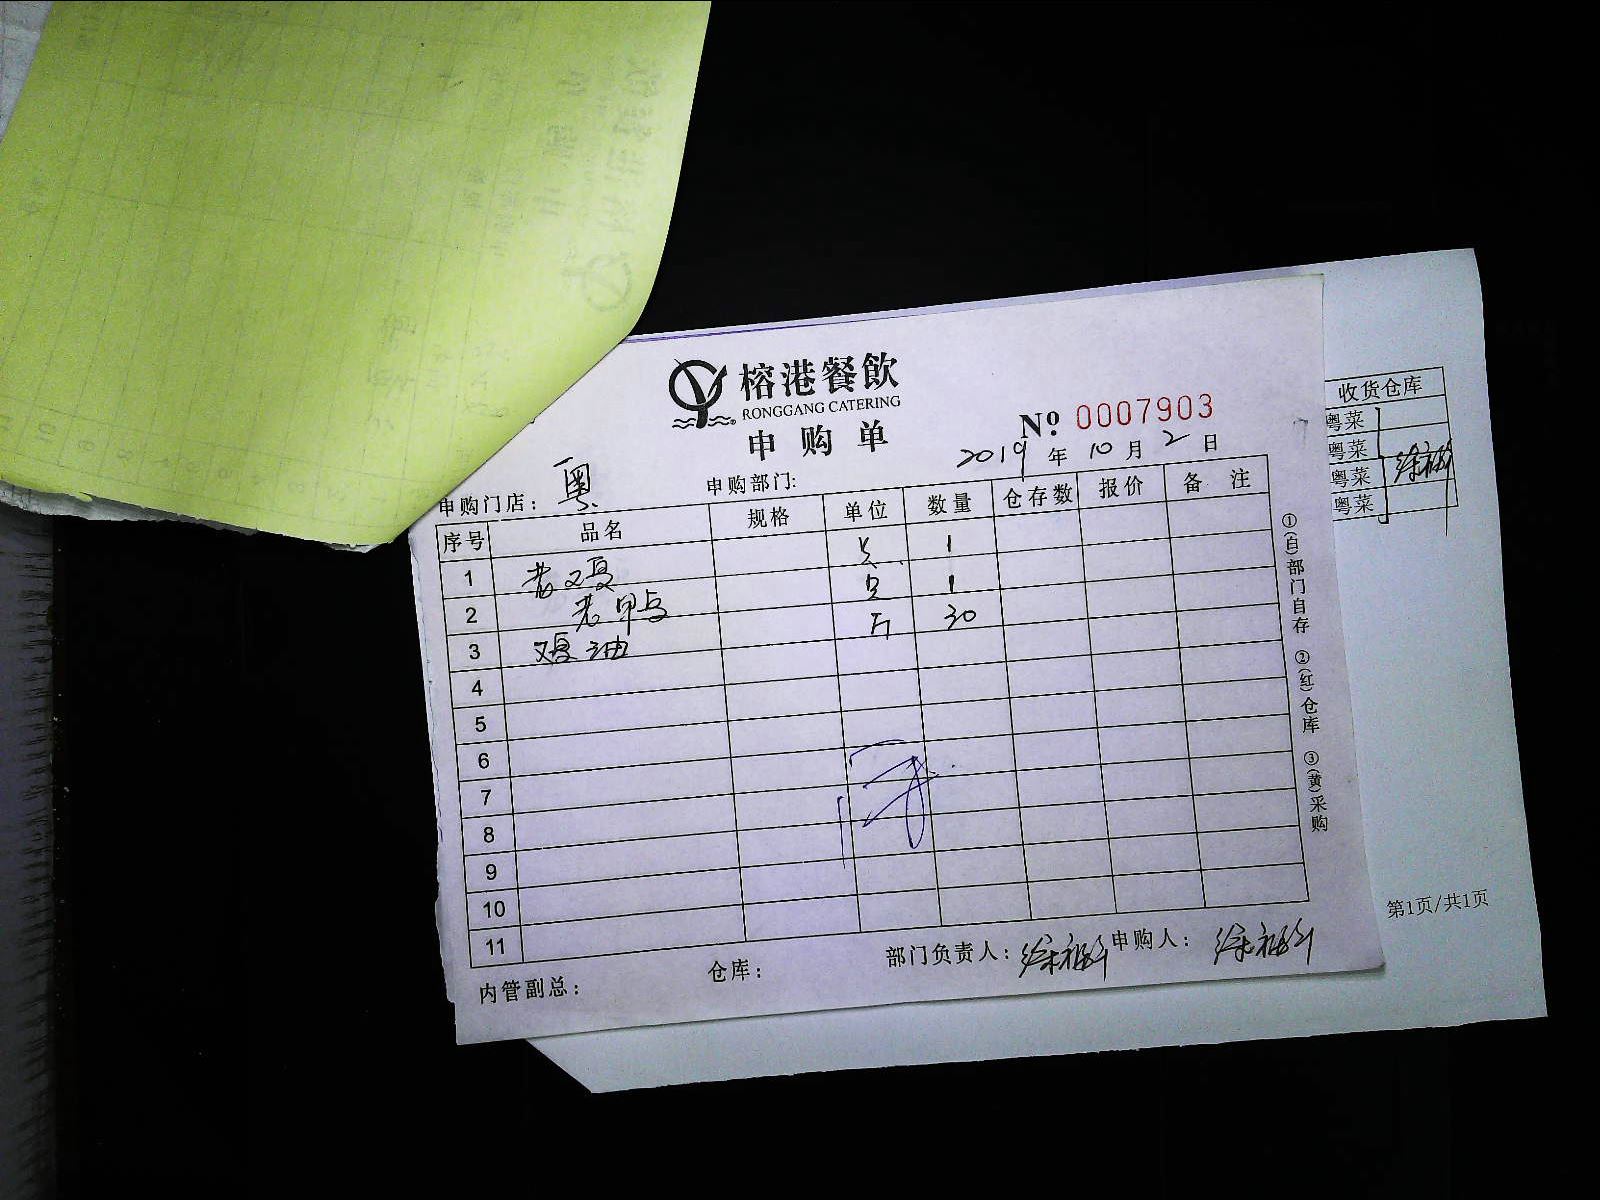 榕港餐飲
RONGGANG CATERING
申购单
Nº: 0007903
2019年10月2日
申购门店：粤 申购部门:
序号 品名 规格 单位 数量 仓存数 报价 备注
1 老鸡 只 1
2 老甲鸟 只 1
3 鸡油 斤 30
4
5
6
7
8
9
10
11
内管副总： 仓库： 部门负责人： 申购人：
①(自)部门自存 ②(红)仓库 ③(黄)采购
收货仓库
粤菜
粤菜
粤菜
粤菜
第1页/共1页